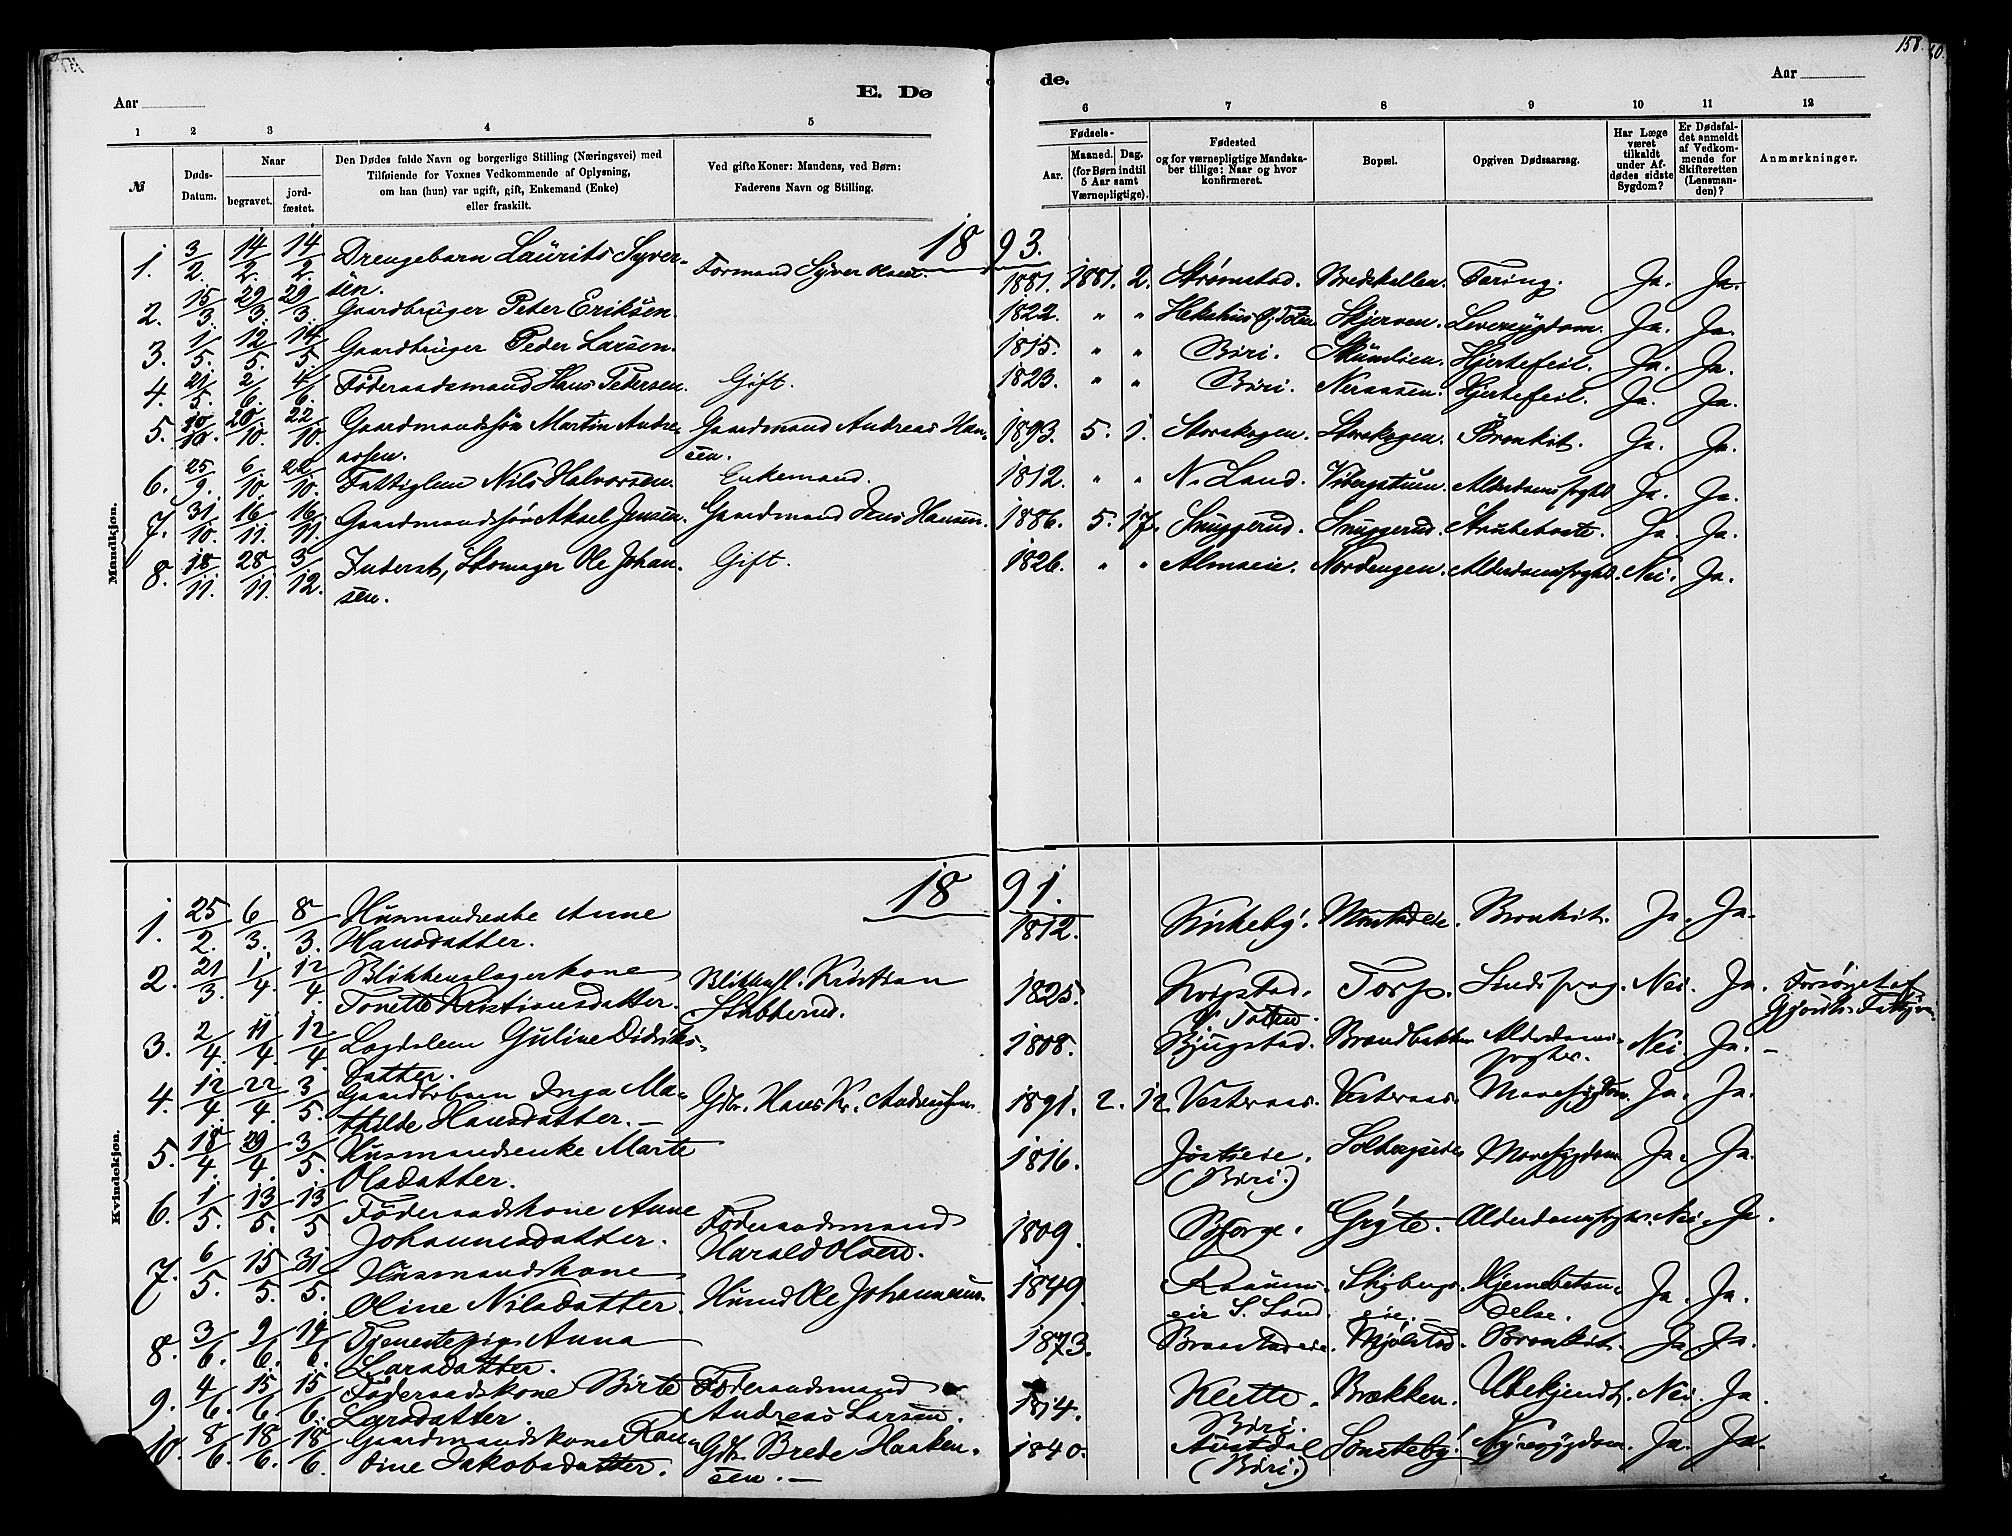 158.
Aar
E. Dø
de.
Aar
1 2 3 4 5 6 7 8 9 10 11 12
№
Døds-
Datum.
Naar
begravet.
jord-
fæstet.
Den Dødes fulde Navn og borgerlige Stilling (Næringsvei) med
Tilføiende for Voxnes Vedkommende af Oplysning,
om han (hun) var ugift, gift, Enkemand (Enke)
eller fraskilt.
Ved gifte Koner: Mandens, ved Børn:
Faderens Navn og Stilling.
Fødsels-
Aar.
Maaned. Dag.
(for Børn indtil
5 Aar samt
Værnepligtige).
Fødested
og for værnepligtige Mandska-
ber tillige: Naar og hvor
konfirmeret.
Bopæl.
Opgiven Dødsaarsag.
Har Læge
været
tilkaldt
under Af-
dødes sidste
Sygdom?
Er Dødsfal-
det anmeldt
af Vedkom-
mende for
Skifteretten
(Lensman-
den)?
Anmærkninger.
Mandkjøn.
1893.
1. 3/2. 14/2. 14/2. Drengebarn Laurits Syver- Formand Syver 1881. 1881. 2. Strømstad. Bredskallen. Tæring. Ja. Ja.
sen.
2. 15/3. 29/3. 29/3. Gaardbruger Peter Eriksen. 1822. " " Skjerven. Leversygdom. Ja. Ja.
3. 1/5. 12/5. 14/5 Gaardbruger Peder Larsen. 1815. " " Biri. Skumlien. Hjertefeil. Ja. Ja.
4. 21/5. 2/6. 4/6. Føderaadsmand Hans Pedersen. Gift. 1823. " " Biri. Neraasen. Hjertefeil. Ja. Ja.
5. 10/10. 20/10. 22/10. Gaardmandssøn Martin Andre- Gaardmand Andreas Han- 1893. 5. 1. Storskogen. Storskogen. Bronkit. Ja. Ja.
assen. sen.
6. 25/9. 6/10. 22/10. Fattiglem Nils Halvorsen. Enkemand. 1812. " " N. Land. Vibergstuen. Ja. Ja.
7. 31/10. 16/11. 16/11. Gaardmandssøn Aksel Jensen. Gaardmand Jens Hansen. 1886. 5. 17. Snuggerud. Snuggerud. Strubehoste. Ja. Ja.
8. 18/11. 28/11. 3/12. Inderst, Skomager Ole Johan- Gift. 1826. " " Almseie. Nordengen. Nei. Ja.
sen.
Kvindekjøn.
1891.
1. 25/2. 6/3. 8/3. Husmandsenke Anne 1812. Kirkeby. Bronkit. Ja. Ja.
Hansdatter.
2. 21/3. 1/4. 12/4. Blikkenslagerkone Blikkensl. Kristian 1825. Torp. Nei. Ja. Forsørget af
Tonette Kristiansdatter. Stubberud. Ø. Toten.
3. 2/4. 11/4. 12/4. Lægdslem Guline Didriks- 1808. Bjugstad. Brændbakken Alderdoms- Nei. Ja. —
datter.
4. 12/4. 22/4. 3/5. Gaardbrbarn Inga Ma- Gdbr. Hans Kr. Andreassen 1891. 2. 12. Vestraas. Vestraas. Mavesygdom. Ja. Ja.
thilde Hansdatter. —
5. 18/4. 29/4. 3/5. Husmandsenke Marte 1816. Mavesygdom. Ja. Ja.
Olsdatter. (Biri.)
6. 1/5. 13/5. 13/5 Føderaadskone Anne Føderaadsmand 1809. Gryte. Nei. Ja.
Johannesdatter. Harald Olsen.
7. 6/5. 15/5. 31/5. Husmandskone 1849. Skyberg- Hjernebetæn- Ja. Ja.
Oline Nilsdatter. Husmd Ole Johannesen. eie S. Land. eie. delse.
8. 3/6. 9/6. 14/6. Tjenestepige Anna 1873. Braastadeie. Mjølstad. Bronkit. Ja. Ja.
Larsdatter.
9. 4/6. 15/6. 15/6. Føderaadskone Birte Føderaadsmand 1814. Klette. Brækken. Ubekjendt. Nei. Ja
Larsdatter. Andreas Larsen. Biri.
10. 8/6. 18/6. 18/6. Gaardmandskone Ran- Gdbr. Brede Haaken- 1840. Austdal Sønsteby. Nyresygdom. Ja. Ja.
dine Jakobsdatter. sen. — (Biri.)